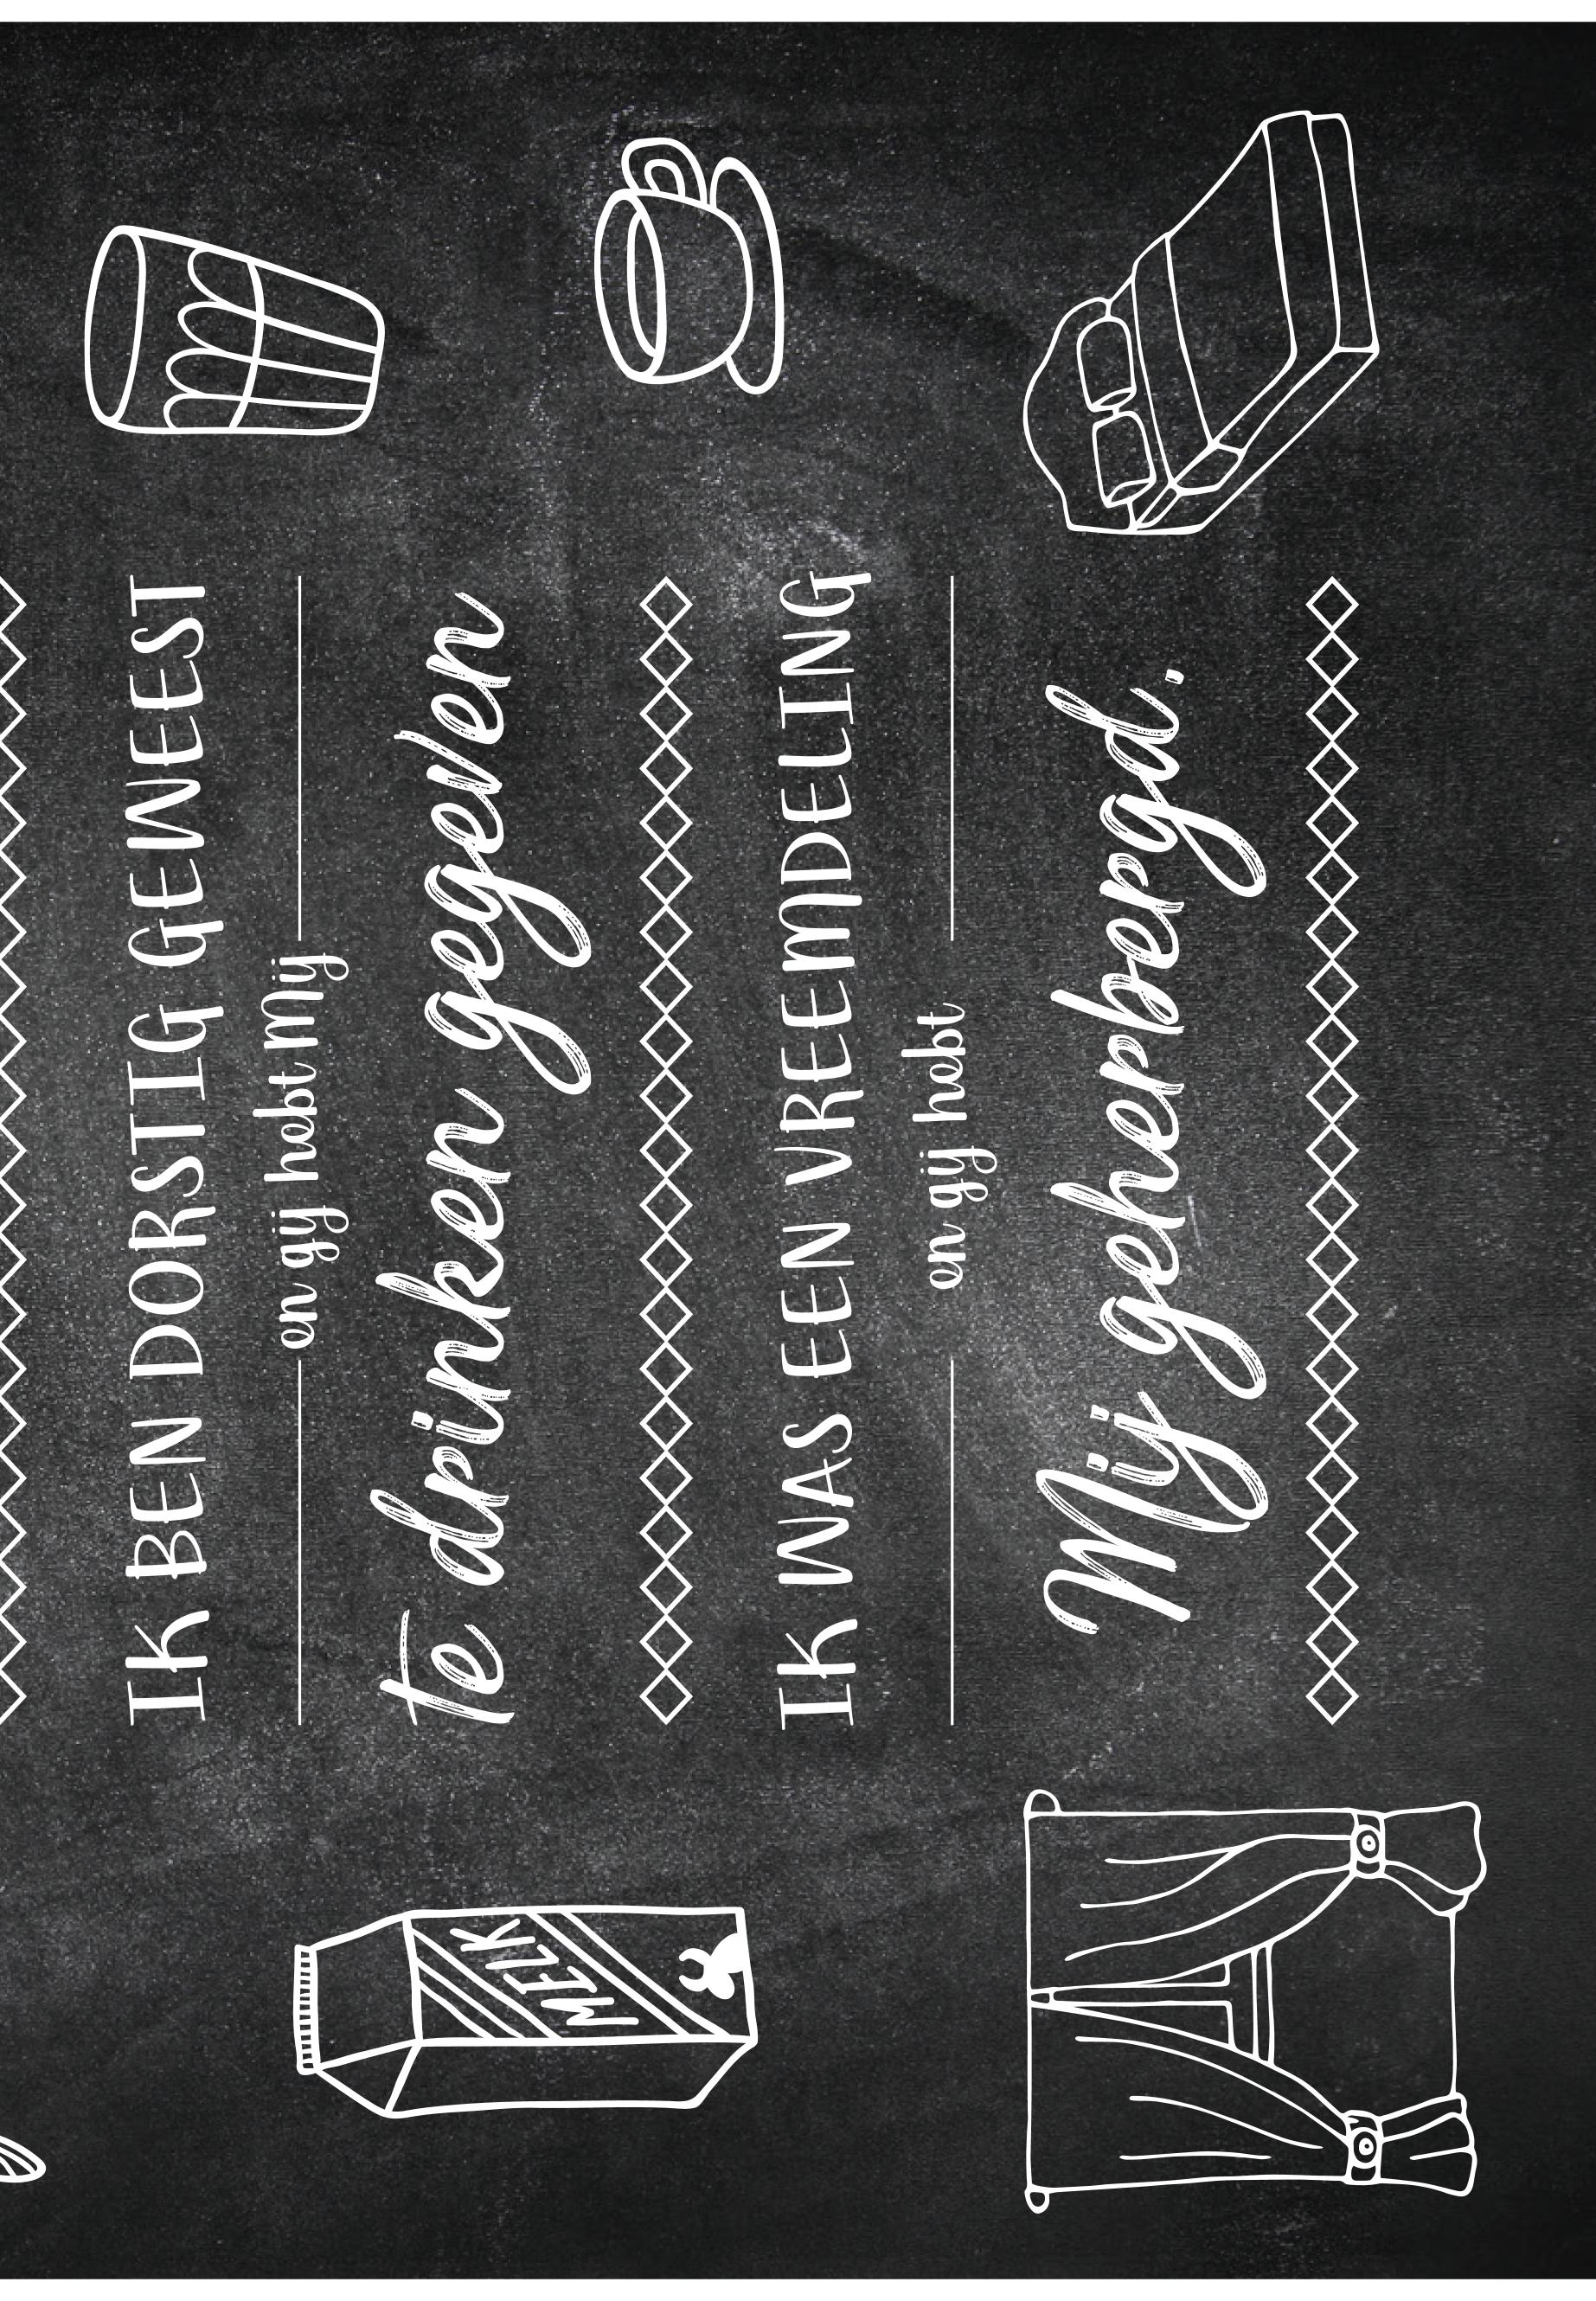 IK BEN DORSTIG GEWEEST
en gij hebt Mij
te drinken gegeven
MELK
IK WAS EEN VREEMDELING
en gij hebt
Mij geherbergd.